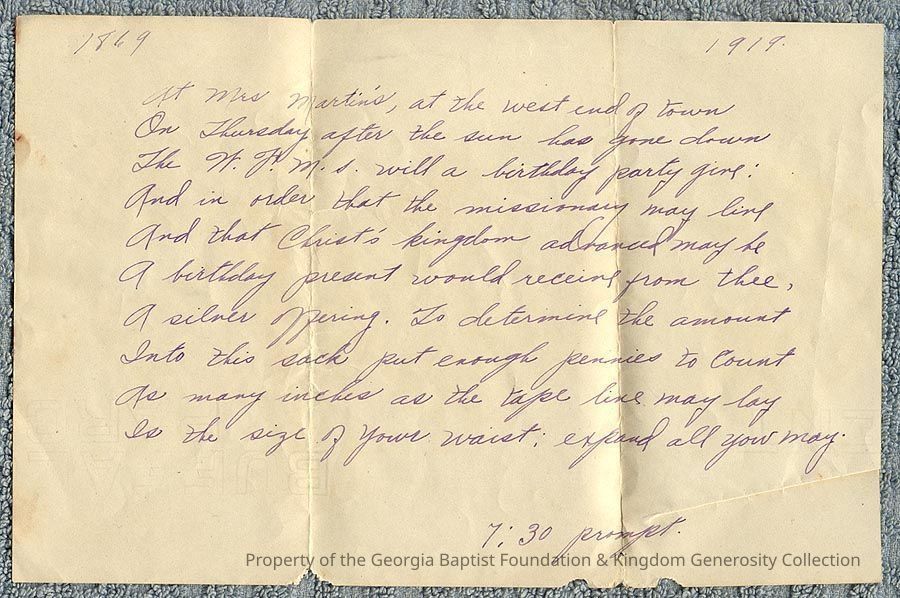 1869 1919.
At Mrs Martin's, at the west end of town
On Thursday after the sun has gone down
The W. F. M. S. will a birthday party give:
And in order that the missionary may live
And that Christ's kingdom advanced may be
A birthday present would receive from thee,
A silver offering. To determine the amount
Into this sack put enough pennies to count
As many inches as the tape line may lay
Is the size of your waist; expand all you may.
7:30 prompt.
Property of the Georgia Baptist Foundation & Kingdom Generosity Collection